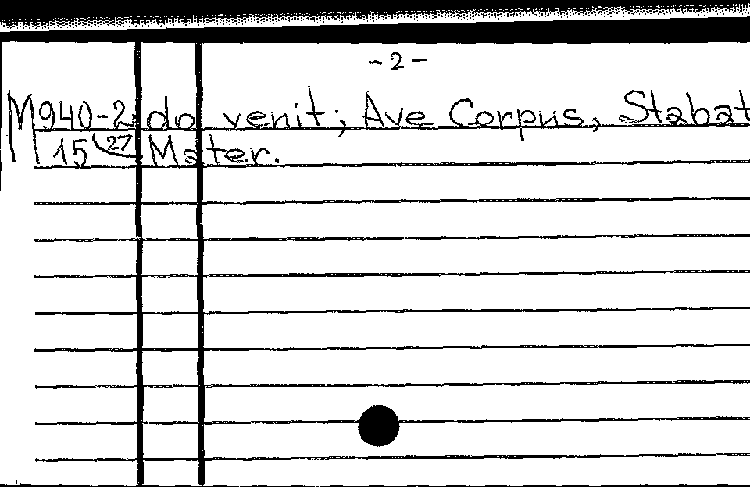 -2-
M940-2 do venit; Ave Corpus, Stabat
15 27 Mater.